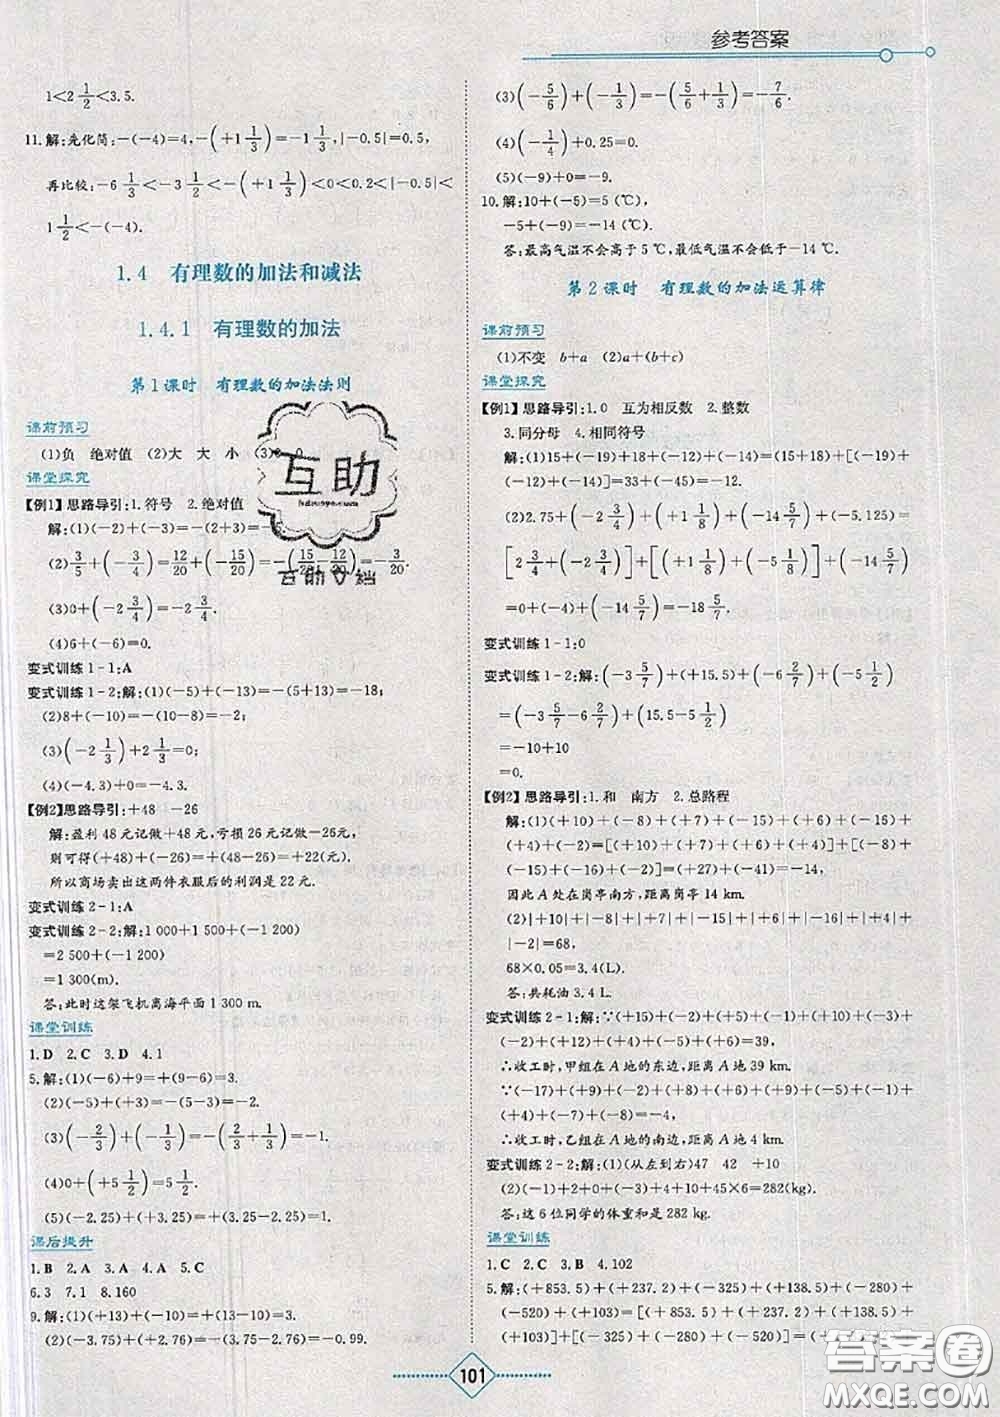 参考答案
1<2 1/2<3.5.
11.解:先化简:-(-4)=4,-(+1 1/3)=-1 1/3,|-0.5|=0.5,
再比较:-6 1/3<-3 1/2<-(+1 1/3)<0<0.2<|-0.5|<
1 1/2<-(-4).
1.4 有理数的加法和减法
1.4.1 有理数的加法
第1课时 有理数的加法法则
课前预习
(1)负 绝对值 (2)大 大 小 (3)0
课堂探究
【例1】思路导引:1.符号 2.绝对值
解:(1)(-2)+(-3)=-(2+3)=-5.
(2)(3/5)+(-3/4)=12/20+(-15/20)=-(15/20-12/20)=-3/20.
(3)0+(-2 3/4)=-2 3/4.
(4)6+(-6)=0.
变式训练1-1:A
变式训练1-2:解:(1)(-5)+(-13)=-(5+13)=-18;
(2)8+(-10)=-(10-8)=-2;
(3)(-2 1/3)+2 1/3=0;
(4)(-4.3)+0=-4.3.
【例2】思路导引:+48 -26
解:盈利48元记做+48元,亏损26元记做-26元,
则可得(+48)+(-26)=+(48-26)=22.
所以商场卖出这两件衣服后的利润是22元.
变式训练2-1:A
变式训练2-2:解:1 000+1 500+(-1 200)
=2 500+(-1 200)
=1 300(m).
答:此时这架飞机离海平面1 300 m.
课堂训练
1.D 2.C 3.D 4.1
5.解:(1)(-6)+9=+(9-6)=3.
(2)(-5)+(+3)=-(5-3)=-2.
(3)(-2/3)+(-1/3)=-(2/3+1/3)=-1.
(4)0+(+5 1/2)=5 1/2.
(5)(-2.25)+(+3.25)=+(3.25-2.25)=1.
课后提升
1.B 2.A 3.A 4.A 5.C
6.3 7.1 8.160
9.解:(1)(+13)+(-10)=+(13-10)=3.
(2)(-3.75)+(+2.76)=-(3.75-2.76)=-0.99.
(3)(-5/6)+(-1/3)=-(5/6+1/3)=-7/6.
(4)(-1/4)+0.25=0.
(5)(-9)+0=-9.
10.解:10+(-5)=5(℃),
-5+(-9)=-14(℃).
答:最高气温不会高于5℃,最低气温不会低于-14℃.
第2课时 有理数的加法运算律
课前预习
(1)不变 b+a (2)a+(b+c)
课堂探究
【例1】思路导引:1.0 互为相反数 2.整数
3.同分母 4.相同符号
解:(1)15+(-19)+18+(-12)+(-14)=(15+18)+[(-19)
+(-12)+(-14)]=33+(-45)=-12.
(2)2.75+(-2 3/4)+(+1 1/8)+(-14 5/7)+(-5.125)=
[2 3/4+(-2 3/4)]+[(+1 1/8)+(-5 1/8)]+(-14 5/7)
=0+(-4)+(-14 5/7)=-18 5/7.
变式训练1-1:0
变式训练1-2:解:(-3 5/7)+(+15.5)+(-6 2/7)+(-5 1/2)
=(-3 5/7-6 2/7)+(15.5-5 1/2)
=-10+10
=0.
【例2】思路导引:1.和 南方 2.总路程
解:(1)(+10)+(-8)+(+7)+(-15)+(+6)+(-16)+
(+4)+(-2)=[(+10)+(+7)+(+6)+(+4)]+[(-8)
+(-15)+(-16)+(-2)]=(+27)+(-41)=-14,
因此A处在岗亭南方,距离岗亭14 km.
(2)|+10|+|-8|+|+7|+|-15|+|+6|+|-16|+|+4|
+|-2|=68,
68×0.05=3.4(L).
答:共耗油3.4 L.
变式训练2-1:解:∵(+15)+(-2)+(+5)+(-1)+(+10)+(-3)+
(-2)+(+12)+(+4)+(-5)+(+6)=39,
∴收工时,甲组在A地的东边,距离A地39 km.
∵(-17)+(+9)+(-2)+(+8)+(+6)+(+9)+(-5)+(-1)+
(+4)+(-7)+(-8)=-4,
∴收工时,乙组在A地的南边,距离A地4 km.
变式训练2-2:解:(1)(从左到右)47 42 +10
(2)(-1)+2+0+(-3)+4+10+45×6=282(kg).
答:这6位同学的体重和是282 kg.
课堂训练
1.C 2.C 3.B 4.102
5.解:(+853.5)+(+237.2)+(-325)+(+138.5)+(-280)+
(-520)+(+103)=[(+853.5)+(+237.2)+(+138.5)+
(+103)]+[(-325)+(-280)+(-520)]
101
互助
互助文档
答案圈
MXQE.COM